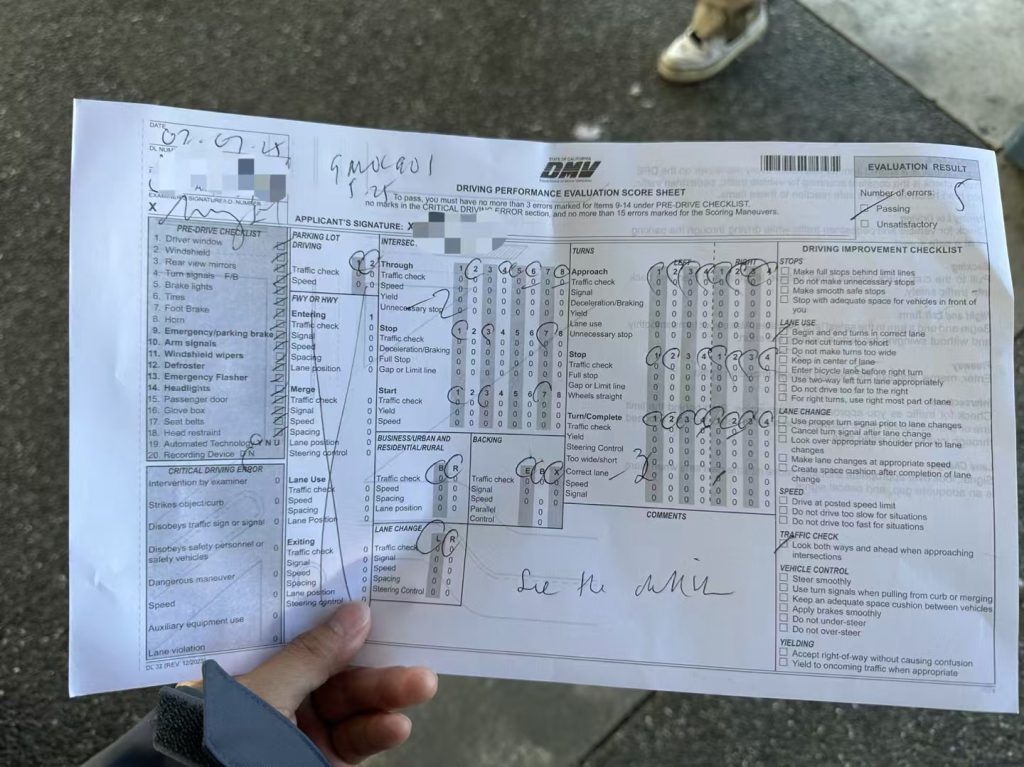 DATE
02.07.25
DL NUM
9MVC901
5.25.
STATE OF CALIFORNIA
DMV
DRIVING PERFORMANCE EVALUATION SCORE SHEET
To pass, you must have no more than 3 errors marked for Items 9-14 under PRE-DRIVE CHECKLIST.
no marks in the CRITICAL DRIVING ERROR section, and no more than 15 errors marked for the Scoring Maneuvers.
APPLICANT'S SIGNATURE: X
EVALUATION RESULT
Number of errors: 5
Passing
Unsatisfactory
X
PRE-DRIVE CHECKLIST
1. Driver window
2. Windshield
3. Rear view mirrors
4. Turn signals F/B
5. Brake lights
6. Tires
7. Foot Brake
8. Horn
9. Emergency/parking brake
10. Arm signals
11. Windshield wipers
12. Defroster
13. Emergency Flasher
14. Headlights
15. Passenger door
16. Glove box
17. Seat belts
18. Head restraint
19. Automated Technology Y N U
20. Recording Device Y N
CRITICAL DRIVING ERROR
Intervention by examiner 0
Strikes object/curb 0
Disobeys traffic sign or signal 0
Disobeys safety personnel or
safety vehicles 0
Dangerous maneuver 0
Speed 0
Auxiliary equipment use 0
Lane violation 0
DL 32 (REV. 12/2023)
PARKING LOT
DRIVING 1 2
Traffic check 0 0
Speed 0 0
FWY OR HWY
Entering 1
Traffic check 0
Signal 0
Speed 0
Spacing 0
Lane position 0
Merge
Traffic check 0
Signal 0
Speed 0
Spacing 0
Lane position 0
Lane Use
Traffic check 0
Speed 0
Spacing 0
Lane Position 0
Exiting
Traffic check 0
Signal 0
Speed 0
Spacing 0
Lane position 0
Steering control 0
INTERSEC.
Through 1 2 3 4 5 6 7 8
Traffic check 0 0 0 0 0 0 0 0
Speed 0 0 0 0 0 0 0 0
Yield 0 0 0 0 0 0 0 0
Unnecessary stop 0 0 0 0 0 0 0 0
Stop 1 2 3 4 5 6 7 8
Traffic check 0 0 0 0 0 0 0 0
Deceleration/Braking 0 0 0 0 0 0 0 0
Full Stop 0 0 0 0 0 0 0 0
Gap or Limit line 0 0 0 0 0 0 0 0
Start 1 2 3 4 5 6 7 8
Traffic check 0 0 0 0 0 0 0 0
Yield 0 0 0 0 0 0 0 0
Speed 0 0 0 0 0 0 0 0
BUSINESS/URBAN AND
RESIDENTIAL/RURAL
B R
Traffic check 0 0
Speed 0 0
Spacing 0 0
Lane position 0 0
BACKING
E B X
Traffic check
Signal
Speed
Parallel
Control
LANE CHANGE
L R
Traffic check 0 0
Signal 0 0
Speed 0 0
Spacing 0 0
Steering Control 0 0
TURNS
LEFT RIGHT
Approach 1 2 3 4 1 2 3 4
Traffic check 0 0 0 0 0 0 0 0
Signal 0 0 0 0 0 0 0 0
Deceleration/Braking 0 0 0 0 0 0 0 0
Yield 0 0 0 0 0 0 0 0
Lane use 0 0 0 0 0 0 0 0
Unnecessary stop 0 0 0 0 0 0 0 0
Stop 1 2 3 4 1 2 3 4
Traffic check 0 0 0 0 0 0 0 0
Full stop 0 0 0 0 0 0 0 0
Gap or Limit line 0 0 0 0 0 0 0 0
Wheels straight 0 0 0 0 0 0 0 0
Turn/Complete 1 2 3 4 1 2 3 4
Traffic check 0 0 0 0 0 0 0 0
Yield 0 0 0 0 0 0 0 0
Steering Control 0 0 0 0 0 0 0 0
Too wide/short 0 0 0 0 0 0 0 0
Correct lane 0 0 0 0 0 0 0 0
Speed 0 0 0 0 0 0 0 0
Signal 0 0 0 0 0 0 0 0
COMMENTS
See the
DRIVING IMPROVEMENT CHECKLIST
STOPS
Make full stops behind limit lines
Do not make unnecessary stops
Make smooth safe stops
Stop with adequate space for vehicles in front of
you
LANE USE
Begin and end turns in correct lane
Do not cut turns too short
Do not make turns too wide
Keep in center of lane
Enter bicycle lane before right turn
Use two-way left turn lane appropriately
Do not drive too far to the right
For right turns, use right most part of lane
LANE CHANGE
Use proper turn signal prior to lane changes
Cancel turn signal after lane change
Look over appropriate shoulder prior to lane
changes
Make lane changes at appropriate speed
Create space cushion after completion of lane
change
SPEED
Drive at posted speed limit
Do not drive too slow for situations
Do not drive too fast for situations
TRAFFIC CHECK
Look both ways and ahead when approaching
intersections
VEHICLE CONTROL
Steer smoothly
Use turn signals when pulling from curb or merging
Keep an adequate space cushion between vehicles
Apply brakes smoothly
Do not under-steer
Do not over-steer
YIELDING
Accept right-of-way without causing confusion
Yield to oncoming traffic when appropriate